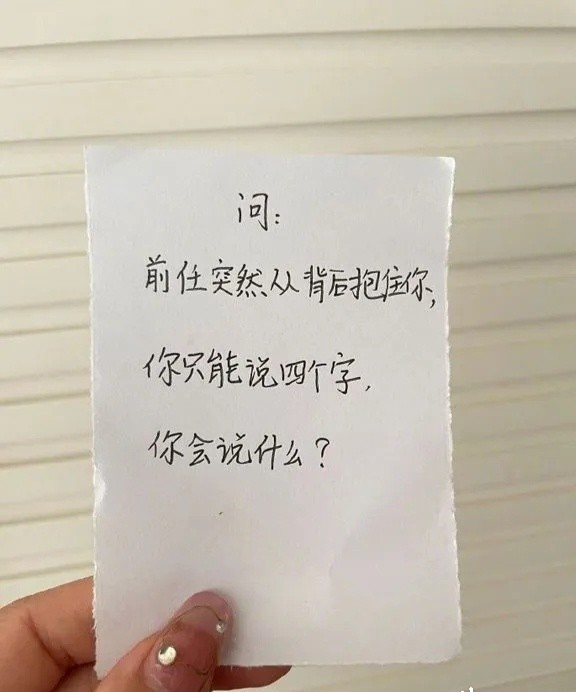 问:
前任突然从背后抱住你,
你只能说四个字,
你会说什么?